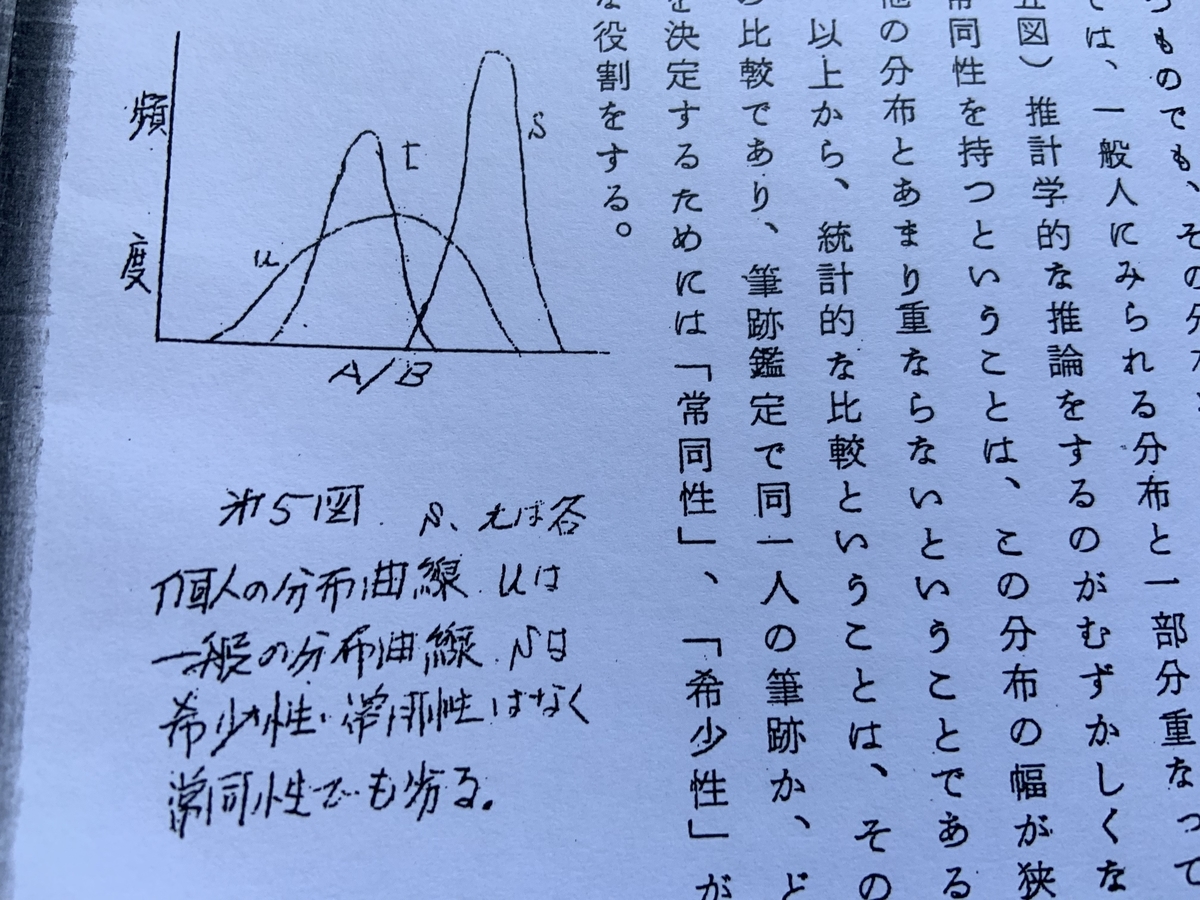 つものでも、その分
では、一般人にみられる分布と一部分重なって
五図）推計学的な推論をするのがむずかしくな
常同性を持つということは、この分布の幅が狭
他の分布とあまり重ならないということである
以上から、統計的な比較ということは、その
の比較であり、筆跡鑑定で同一人の筆跡か、ど
を決定するためには「常同性」、「希少性」が
な役割をする。
頻度
u
t
S
A/B
第5図 S、tは各
個人の分布曲線 uは
一般の分布曲線 Sは
希少性・常同性はなく
常同性でも劣る。